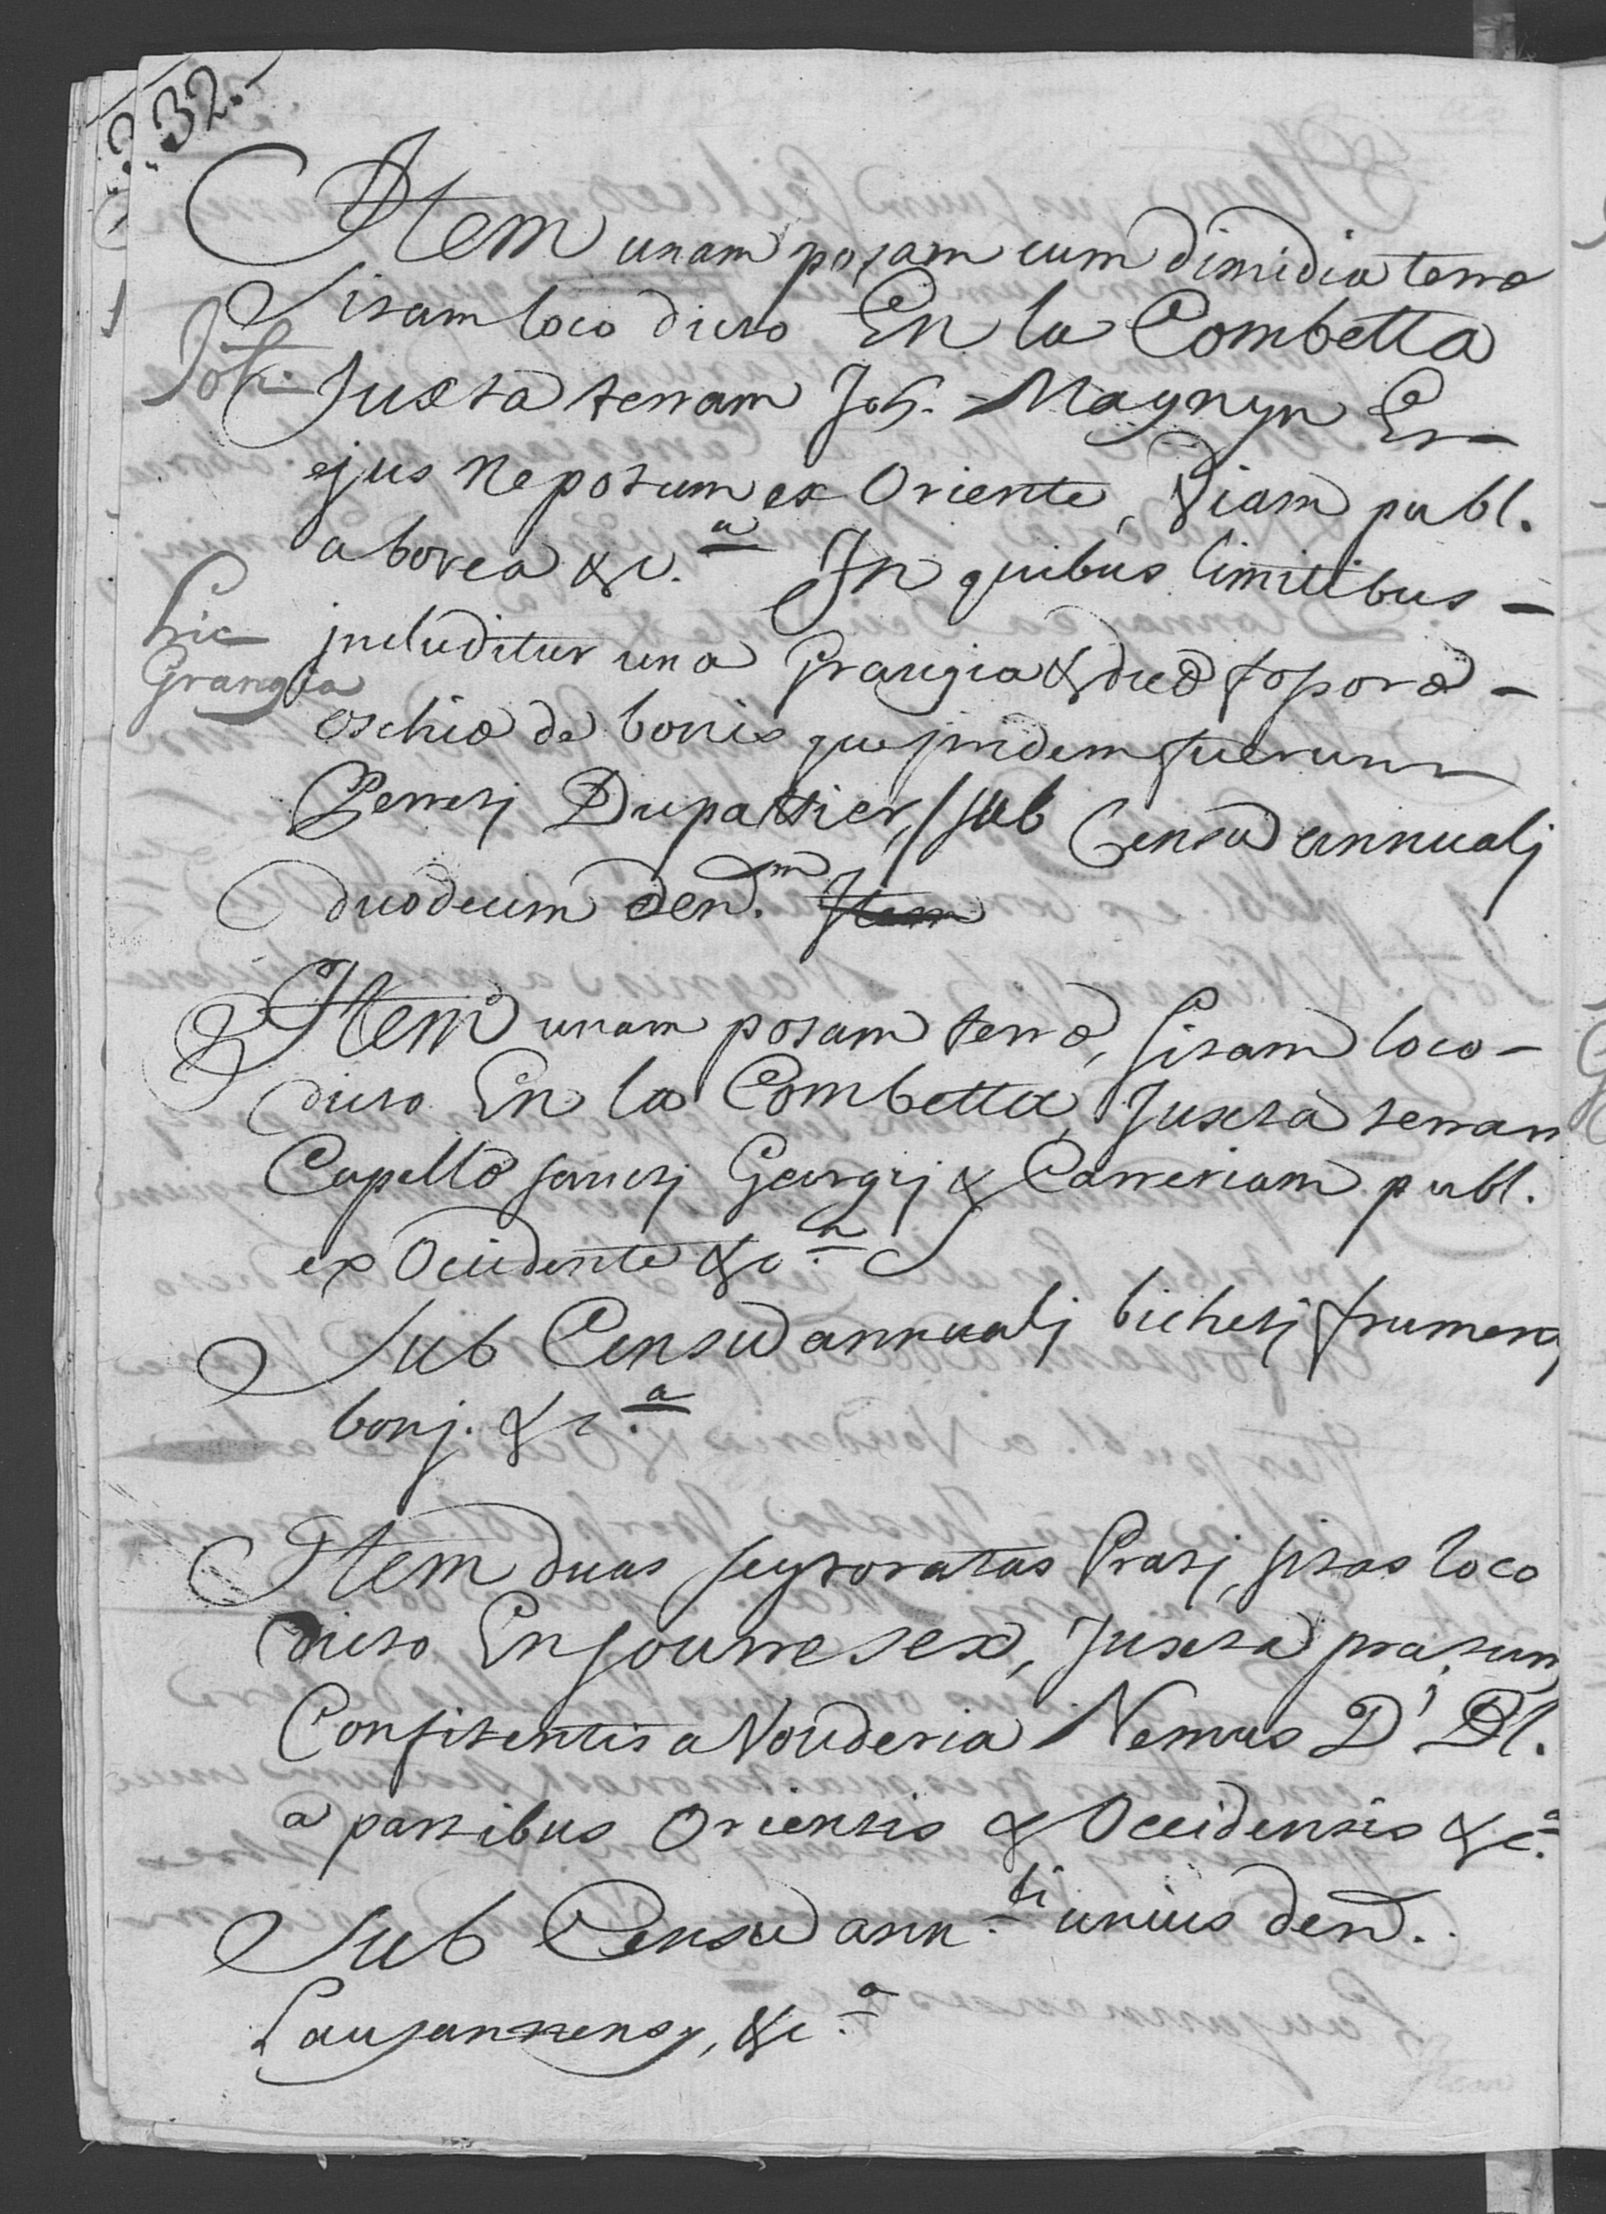 232.
Item unam posam cum dimidia terræ
Sitam loco dicto En la Combetta
Joh.
Juxta terram Joh. Magnyn Et
ejus Nepotum ex Oriente, Viam publ.
a borea &c.a In quibus limitibus -
hic
Grangia
includitur una Grangia & duæ foporæ -
oschiæ de bonis que pridem fuerunt
Perreti Dupattier, sub Censu annualj
duodecim den.m Item
Item unam posam terræ, Sitam loco -
dicto En la Combetta, Juxta terram
Capellæ sanctj Georgij & Carreriam publ.
ex Occidente &c.a
Sub Censu annualj bichetj frumentj
bonj. &c.a
Item duas seytoratas Pratj, sitas loco
dicto En sourre sex, Juxta pratum
Confitentis a Vouderia Nemus D' Bl.
a partibus Orientis & Occidentis &c.a
Sub Censu ann.li unius den.
Lausannensy, &c.a